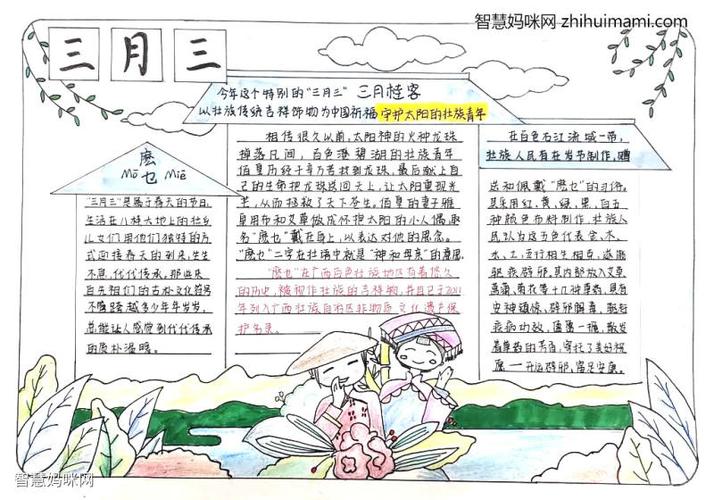 智慧妈咪网 zhihuimami.com
三月三
今年这个特别的“三月三” 三月桂客
以壮族传统吉祥饰物为中国祈福 守护太阳的壮族青年
麽乜
Mō Miē
“三月三”是属于春天的节日。
生活在八桂大地上的壮乡
儿女们用他们独特的方
式迎接春天的到来，生生
不息，代代传承，那些来
自先祖们的古朴文化符号
不管跨越多少年年岁岁，
总能让人感觉到代代传承
的质朴温暖。
相传很久以前，太阳神的火种龙珠
掉落凡间，百色澄碧湖的壮族青年
伯皇历经千辛万苦找到龙珠，最后献上自
己的生命把龙珠送回天上，让太阳重现光
芒，从而拯救了天下苍生。伯皇的妻子雅
皇用布和艾草做成怀抱太阳的小人偶，
名“麽乜”戴在身上，以表达对他的思念。
“麽乜”二字在壮语中就是“神和母亲”的意思。
“麽乜”在广西百色壮族地区有着悠久
的历史，被视作壮族的吉祥物，并且已于2011
年列入广西壮族自治区非物质文化遗产保
护名录。
在百色右江流域一带，
壮族人民有在岁节制作、赠
送和佩戴“麽乜”的习俗。
其采用红、黄、绿、黑、白五
种颜色布料制作，壮族人
民认为这五色代表金、木、
水、土，五行相生相克，逐瘟
驱疾辟邪，其内部放入艾草、
等十几种草药，具有
安神镇惊、辟邪解毒、
疾病功效，散发
着草药的芳香，寄托了美好祝
愿——开运辟邪，富足安康。
智慧妈咪网